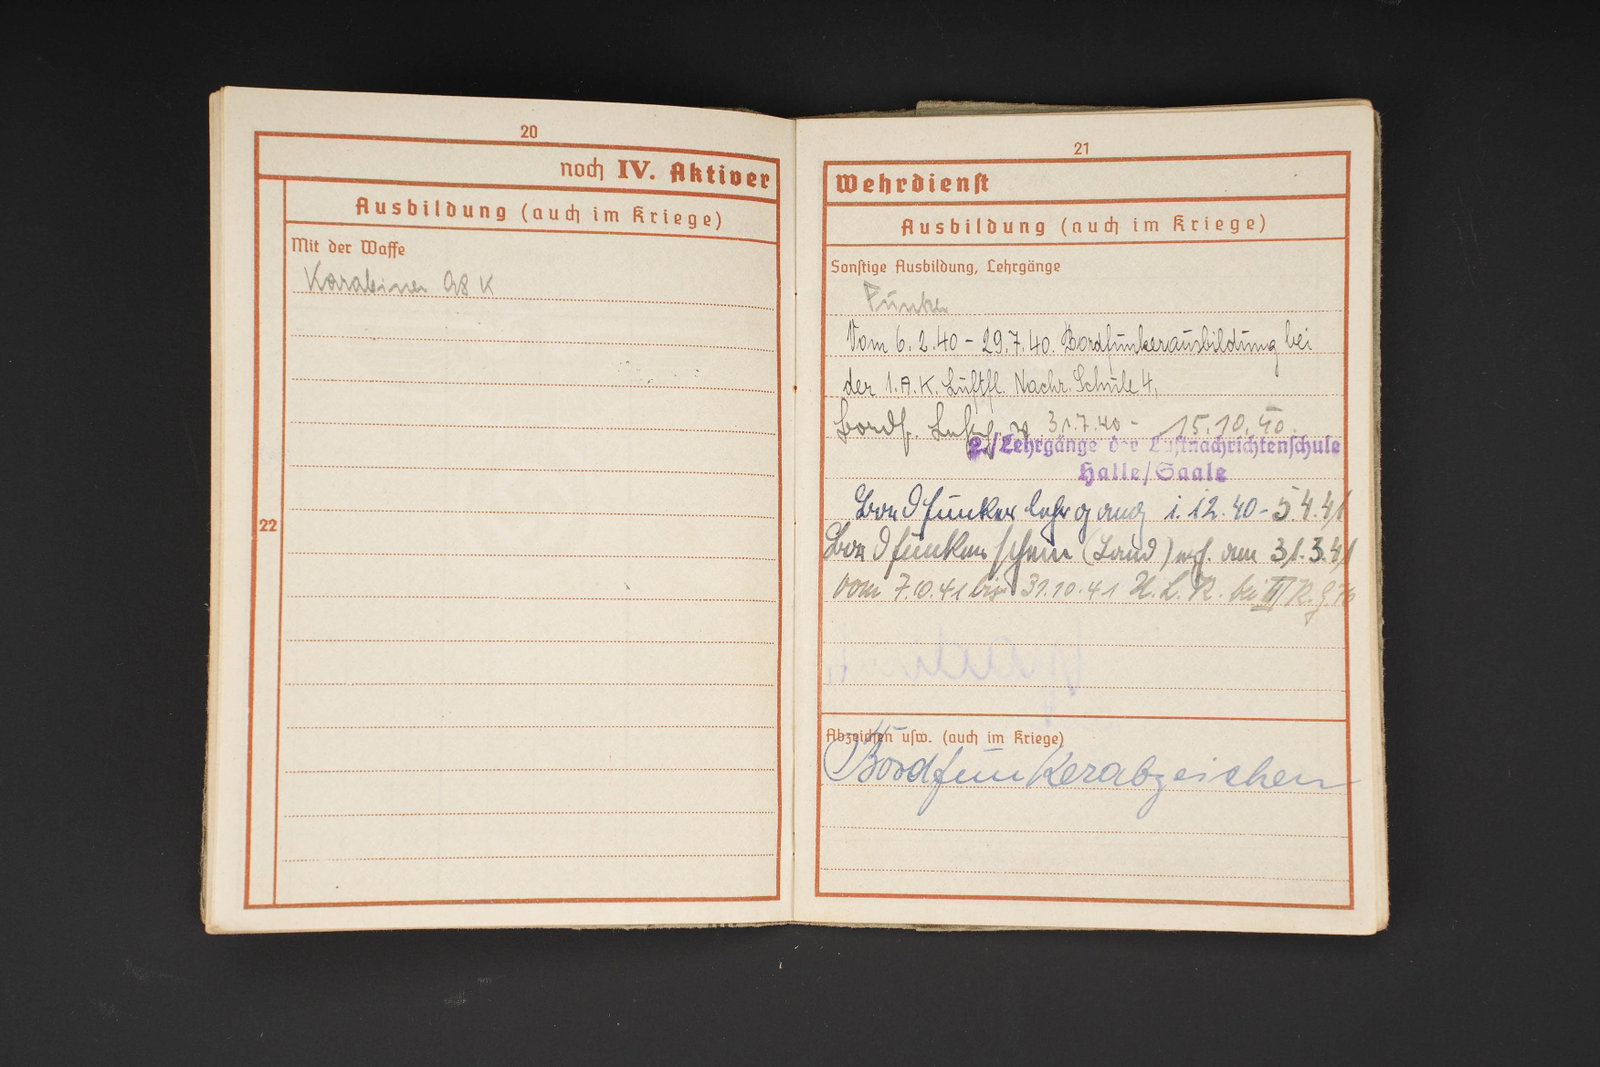 20
noch IV. Aktiver
Ausbildung (auch im Kriege)
Mit der Waffe
Karabiner 98 K
22
21
Wehrdienst
Ausbildung (auch im Kriege)
Sonstige Ausbildung, Lehrgänge
Funker
Vom 6.2.40 - 29.7.40. Bordfunkerausbildung bei
der 1.A.K. Luftfl. Nachr. Schule 4,
Bordf. 31.7.40 - 15.10.40.
2./Lehrgänge der Luftnachrichtenschule
Halle/Saale
Bordfunkerlehrgang 1.12.40 - 5.4.41
Bordfunkerschein (Land) erf. am 31.3.41
vom 7.10.41 bis 31.10.41 bei III
Abzeichen usw. (auch im Kriege)
Bordfunkerabzeichen